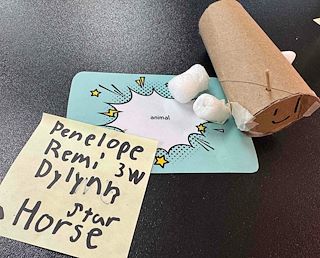 animal
Penelope
Remi 3W
Dylynn
star
Horse